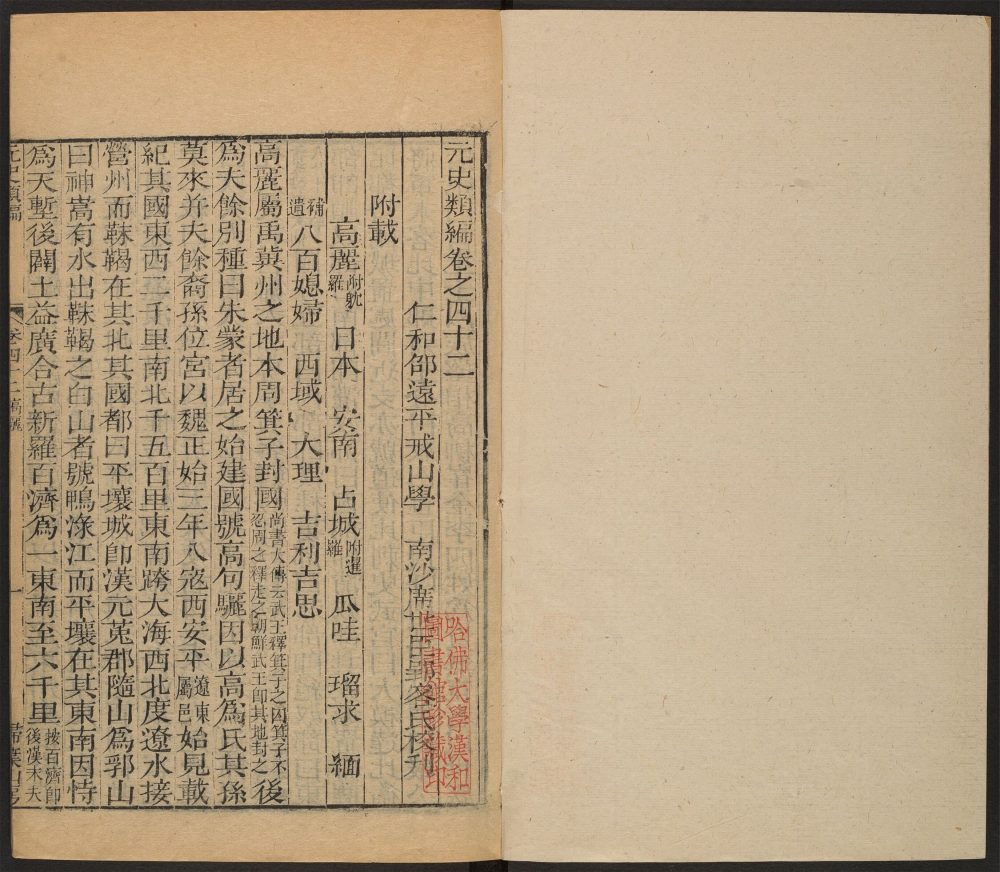 元史類編卷之四十二
仁和邵遠平戒山學 南沙席世臣郢客氏校刊
哈佛大學漢和
圖書館珍藏印
附載
高麗附躭羅 日本 安南 占城附暹羅 瓜哇 瑠求 緬
補遺八百媳婦 西域 大理 吉利吉思
高麗屬禹冀州之地本周箕子封國尚書大傳云武王釋箕子之囚箕子不忍周之釋走之朝鮮武王即其地封之後
爲夫餘別種曰朱蒙者居之始建國號高句驪因以高爲氏其孫
莫來并夫餘裔孫位宮以魏正始三年入寇西安平遼東屬邑始見載
紀其國東西二千里南北千五百里東南跨大海西北度遼水接
營州而靺鞨在其北其國都曰平壤城卽漢元菟郡隨山爲郛山
曰神嵩有水出靺鞨之白山者號鴨淥江而平壤在其東南因恃
爲天塹後闢土益廣合古新羅百濟爲一東南至六千里按百濟卽後漢末夫
元史類編 卷四十二 高麗 一 掃葉山房